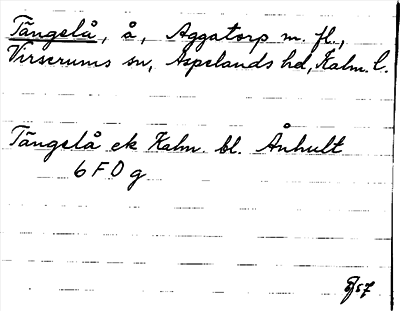 Tängelå, å, Aggatorp m. fl.,
Virserums sn, Aspelands hd, Kalm. l.
Tängelå ek Kalm. bl. Ånhult
6 F 0 g
57